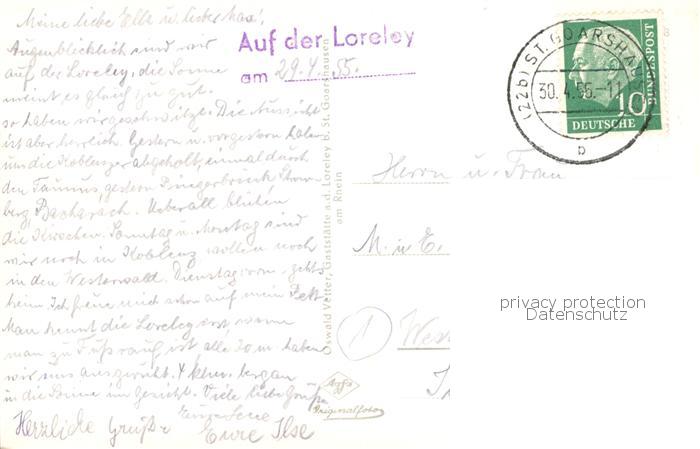 Meine liebe Ella u. lieber Max!
Augenblicklich sind wir
auf der Loreley, die Sonne
meint es gleich zu gut.
so haben wir geschwitzt. Die Aussicht
ist aber herrlich. Gestern u. vorgestern haben
uns die Koblenzer abgeholt, einmal durch
den Taunus, gestern Bingerbrück
berg, Bacharach. Ueberall blühen
die Kirschen. Sonntag u. Montag sind
wir noch in Koblenz, wollen noch
in den Westerwald. Dienstag geht's
heim. Ich freue mich schon auf mein Bett
Man kennt die Loreley erst, wenn
man zu Fuß rauf ist, alle 20 m. haben
wir uns ausgeruht. 4 klm. bergan
in die Sonne im Gesicht. Viele liebe Grüße
Eure
Herzliche Grüße Eure Ilse
Auf der Loreley
am 29.4.55.
Oswald Vetter, Gaststätte a.d. Loreley b. St. Goarshausen
am Rhein
Agfa
Originalfoto
(22b) ST. GOARSHAUSEN
30.4.55.-11
b
10
DEUTSCHE
BUNDESPOST
Herrn u. Frau
M. u. E.
1
West
privacy protection
Datenschutz